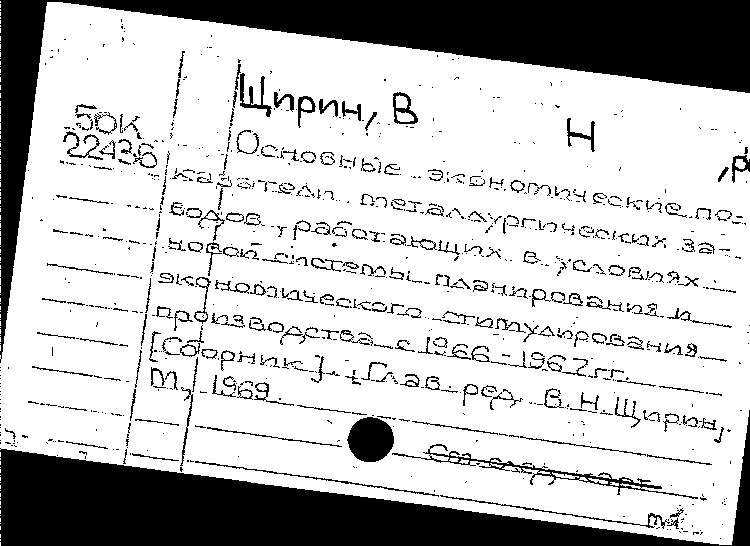 Щирин, В Н , ре
50К
22436
Основные экономические по-
казатели металлургических за-
водов, работающих в условиях
новой системы планирования и
экономического стимулирования
производства с 1966-1967 гг.
[Сборник]. Глав. ред. В.Н. Щирин,
М, 1969.
См. след. карт.